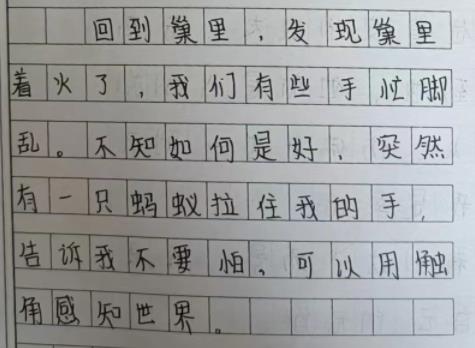 回到巢里，发现巢里
着火了，我们有些手忙脚
乱。不知如何是好，突然
有一只蚂蚁拉住我的手，
告诉我不要怕，可以用触
角感知世界。